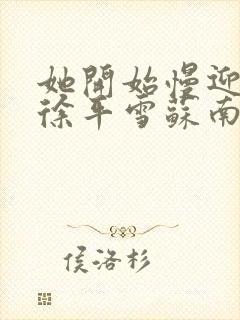 她開始慢迎
徐平雪蘇南
侯洛杉